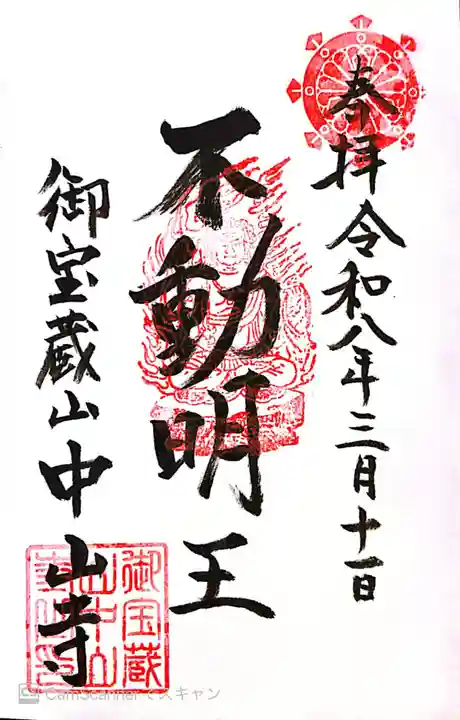 奉拝 令和八年三月十一日
不動明王
御宝蔵山中山寺
御宝蔵
山中山
CamScannerでスキャン